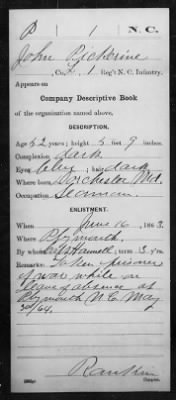 P 1 N.C.
John Pickerine
Co. L, 1 Reg't N. C. Infantry.
Appears on
Company Descriptive Book
of the organization named above.
DESCRIPTION.
Age 52 years; height 5 feet 9 inches.
Complexion dark
Eyes blue; hair dark
Where born Dorchester Md.
Occupation Seaman
ENLISTMENT.
When June 16, 1863.
Where Plymouth.
By whom ; term 3 y'rs.
Remarks: Taken prisoner
of war while on
leave of absence at
Plymouth N.C. May
3rd/64.
Rankin
Copyist.